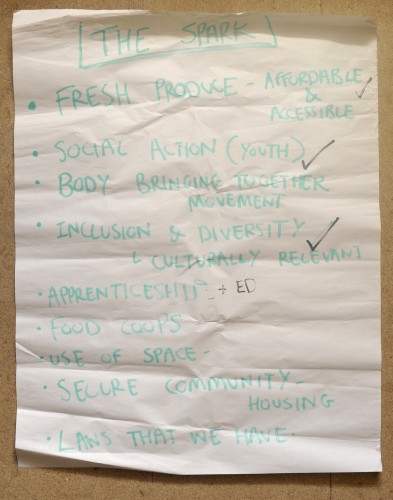 [THE SPARK]
• FRESH PRODUCE - AFFORDABLE
&
ACCESSIBLE ✓
• SOCIAL ACTION (YOUTH) ✓
• BODY BRINGING TOGETHER
MOVEMENT
• INCLUSION & DIVERSITY ✓
↳ CULTURALLY RELEVANT
• APPRENTICESHIPS + ED
• FOOD COOPS
• USE OF SPACE -
• SECURE COMMUNITY -
HOUSING
• LAWS THAT WE HAVE.